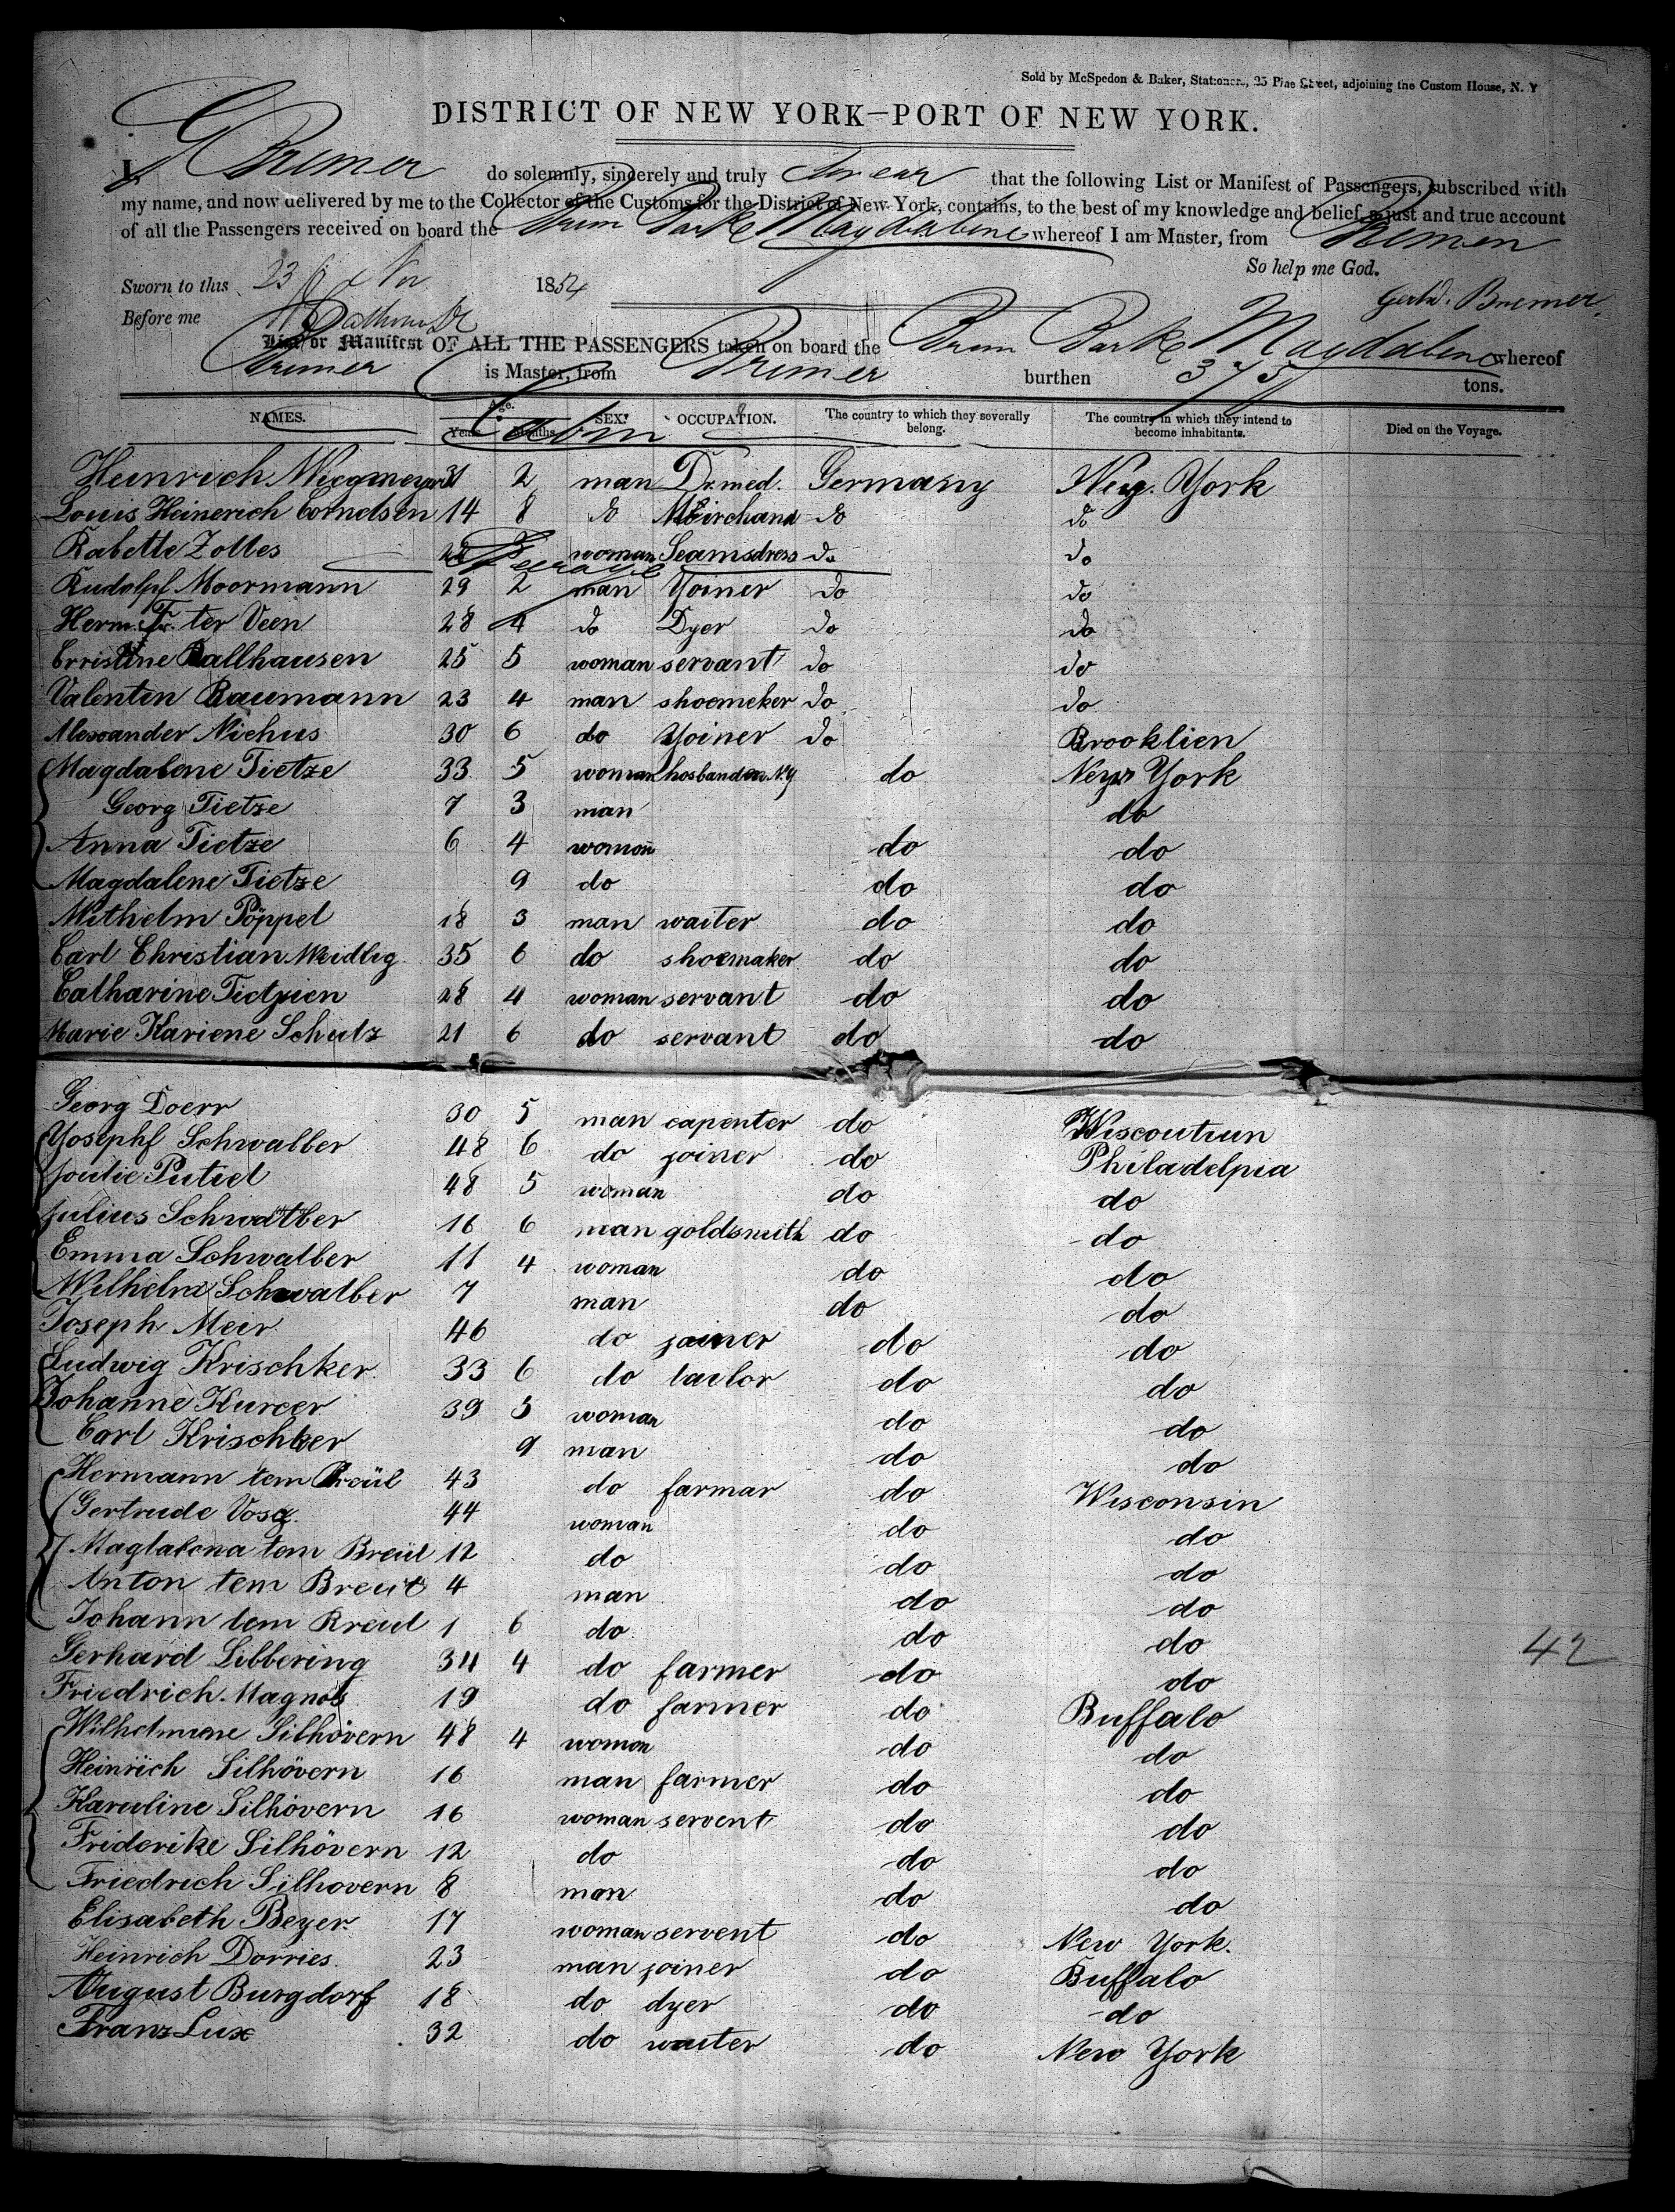 Sold by McSpedon & Baker, Stationers, 25 Pine Street, adjoining the Custom House, N. Y
DISTRICT OF NEW YORK—PORT OF NEW YORK.
I, G Bremer do solemnly, sincerely and truly swear that the following List or Manifest of Passengers, subscribed with
my name, and now delivered by me to the Collector of the Customs for the District of New York, contains, to the best of my knowledge and belief, a just and true account
of all the Passengers received on board the Brem Bark Magdalene whereof I am Master, from Bremen
So help me God.
Sworn to this 23 Nov 1854
Gerhd. Bremer.
Before me
List or Manifest OF ALL THE PASSENGERS taken on board the Brem Bark Magdalene whereof
Bremer is Master, from Bremen burthen 375 tons.
NAMES. Age. Years Months SEX. OCCUPATION. The country to which they severally belong. The country in which they intend to become inhabitants. Died on the Voyage.
Cabin
Heinrich Wiegmeyer 31 2 man Dr. med. Germany New York
Louis Heinerich Cornelsen 14 8 do Meirchand do do
Babette Zolles 22 3 woman Seamsdress do do
Steerage
Rudolpf Moormann 29 2 man Yoiner do do
Herm. Fr. ter Veen 28 4 do Dyer do do
Erristine Ballhausen 25 5 woman servant do do
Valentin Baumann 23 4 man shoemeker do do
Alexander Niehus 30 6 do Yoiner do Brooklien
Magdalene Tietze 33 5 woman hosband in N.Y do New York
Georg Tietze 7 3 man do
Anna Tietze 6 4 woman do do
Magdalene Tietze 9 do do do
Wilhelm Pöppel 18 3 man waiter do do
Carl Christian Weidlig 35 6 do shoemaker do do
Catharine Tietjien 28 4 woman servant do do
Marie Kariene Schulz 21 6 do servant do do
Georg Doerr 30 5 man capenter do Wiscoutiun
Yosephf Schwalber 48 6 do joiner do Philadelpia
Joulie Putiel 48 5 woman do do
Julius Schwalber 16 6 man goldsmith do do
Emma Schwalber 11 4 woman do do
Wilhelm Schwalber 7 man do do
Joseph Meir 46 do joiner do do
Ludwig Krischker 33 6 do tailor do do
Johanne Kurcer 39 3 woman do do
Carl Krischker 9 man do do
Hermann tem Breül 43 do farmar do Wisconsin
Gertrude Vosg. 44 woman do do
Maglalena tem Breül 12 do do do
Anton tem Breul 4 man do do
Johann tem Breul 1 6 do do do
Gerhard Libbering 34 4 do farmer do do
42
Friedrich Magnos 19 do farmer do Buffalo
Wilhelmine Silhövern 48 4 woman do do
Heinrich Silhövern 16 man farmer do do
Karuline Silhövern 16 woman servent do do
Friderike Silhövern 12 do do do
Friedrich Silhovern 8 man do do
Elisabeth Beyer 17 woman servent do New York.
Heinrich Dorries 23 man joiner do Buffalo
August Burgdorf 18 do dyer do do
Franz Lux 32 do waiter do New York